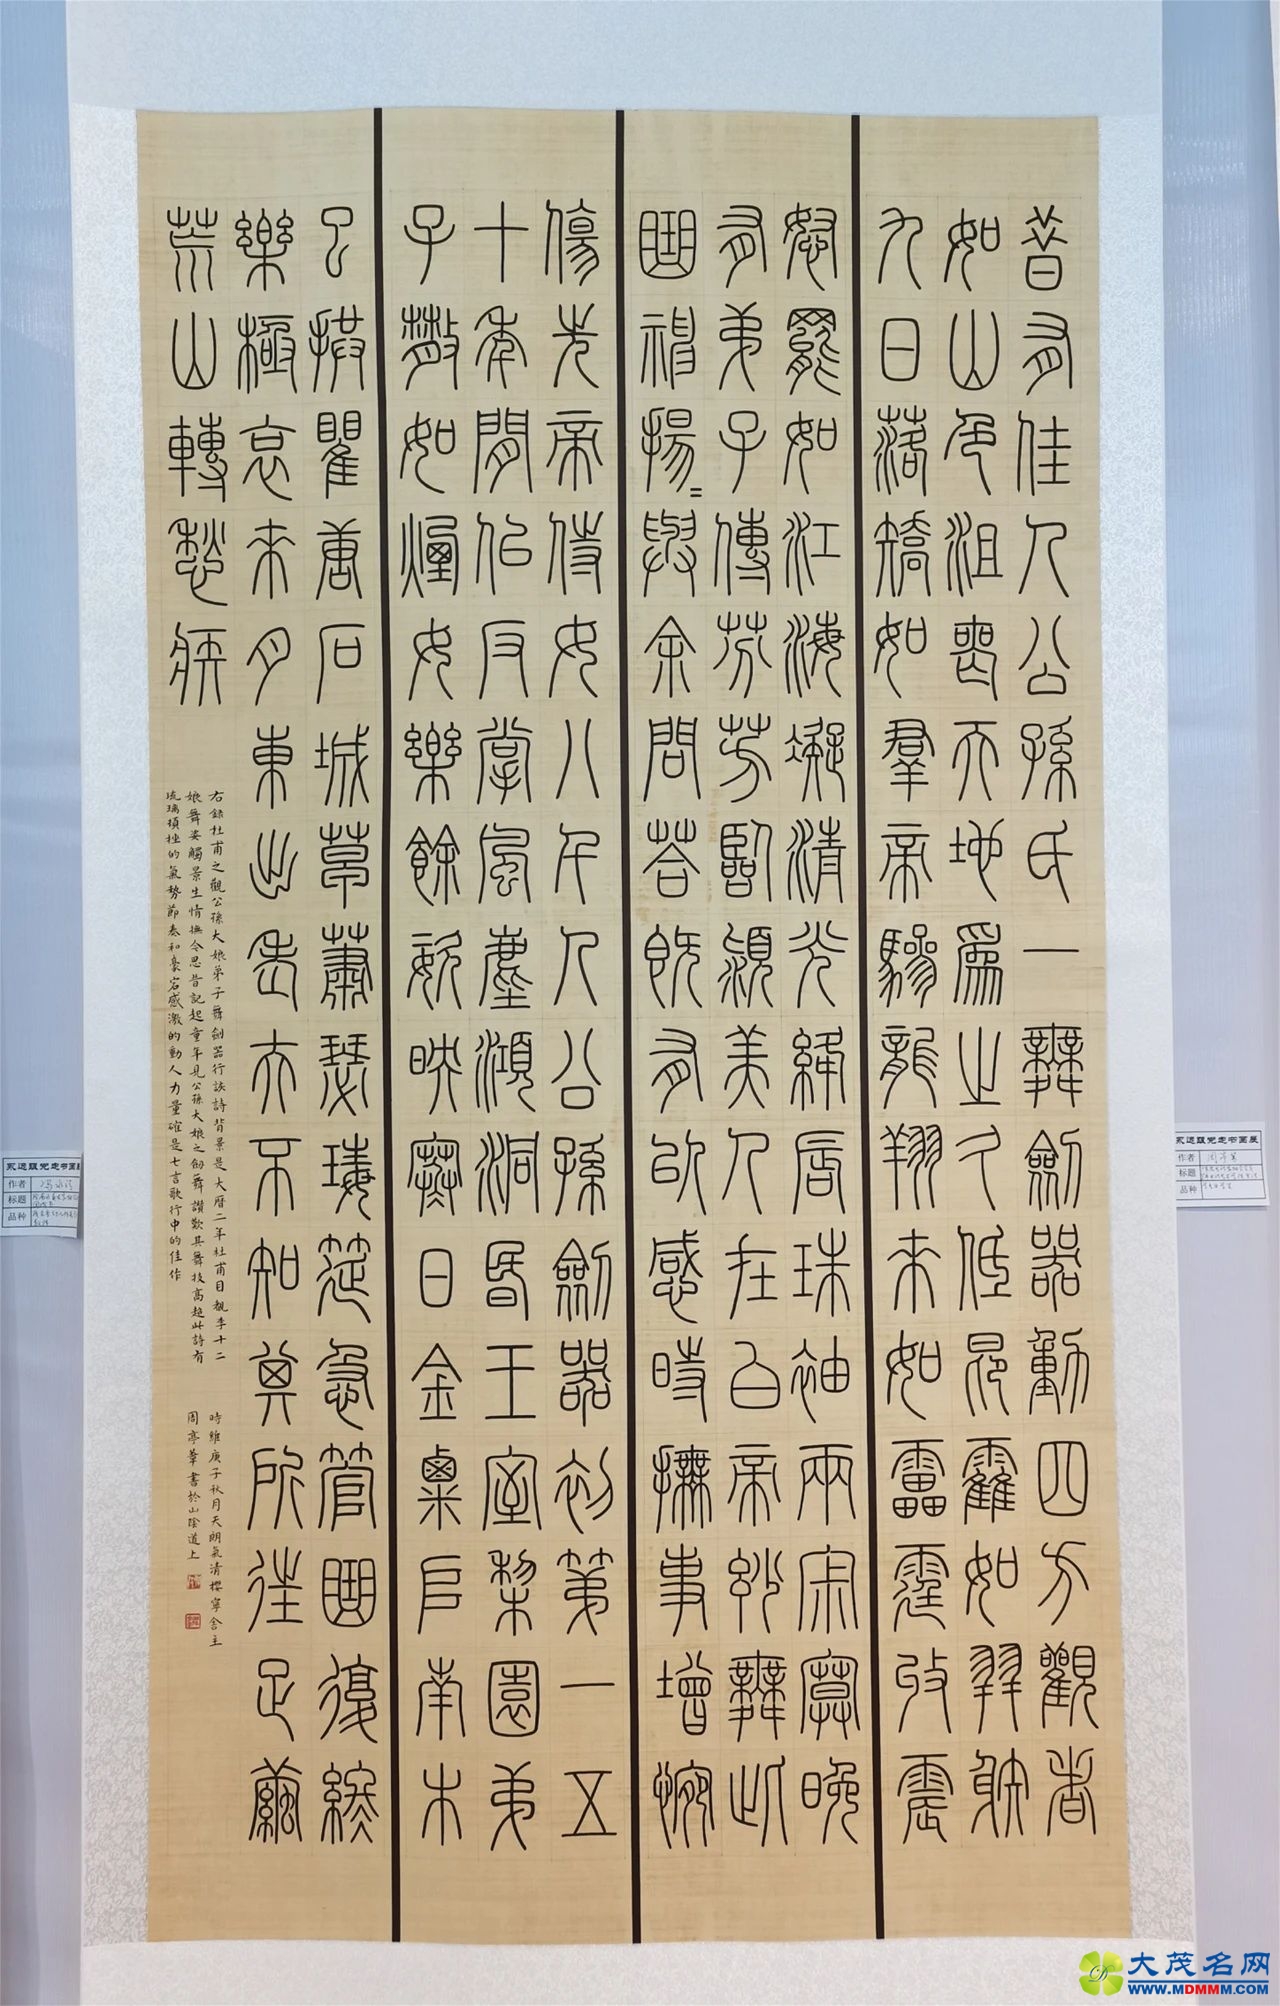 昔有佳人公孫氏一舞劍器動四方觀者
如山色沮喪天地為之久低昂霍如羿射
九日落矯如羣帝驂龍翔來如雷霆收震
怒罷如江海凝清光絳脣珠袖兩寂寞晚
有弟子傳芬芳臨潁美人在白帝妙舞此
曲神揚=與余問答既有以感時撫事增惋
傷先帝侍女八千人公孫劍器初第一五
十年間似反掌風塵澒洞昏王室梨園弟
子散如煙女樂餘姿映寒日金粟𠂤南木
已拱瞿唐石城草蕭瑟瑇筵急管曲復終
樂極哀來月東出老夫不知其所往足繭
荒山轉愁疾
右錄杜甫之觀公孫大娘弟子舞劍器行該詩背景是大曆二年杜甫目覩李十二
娘舞姿觸景生情撫今思昔記起童年見公孫大娘之劍舞讚歎其舞技高超此詩有
琉璃頓挫的氣勢節奏和豪宕感激的動人力量確是七言歌行中的佳作
時維庚子秋月天朗氣清櫻寧舍主
周亭華書於山陰道上
作者
标题
品种
作者
标题
品种
大茂名网
WWW.MDMMM.COM